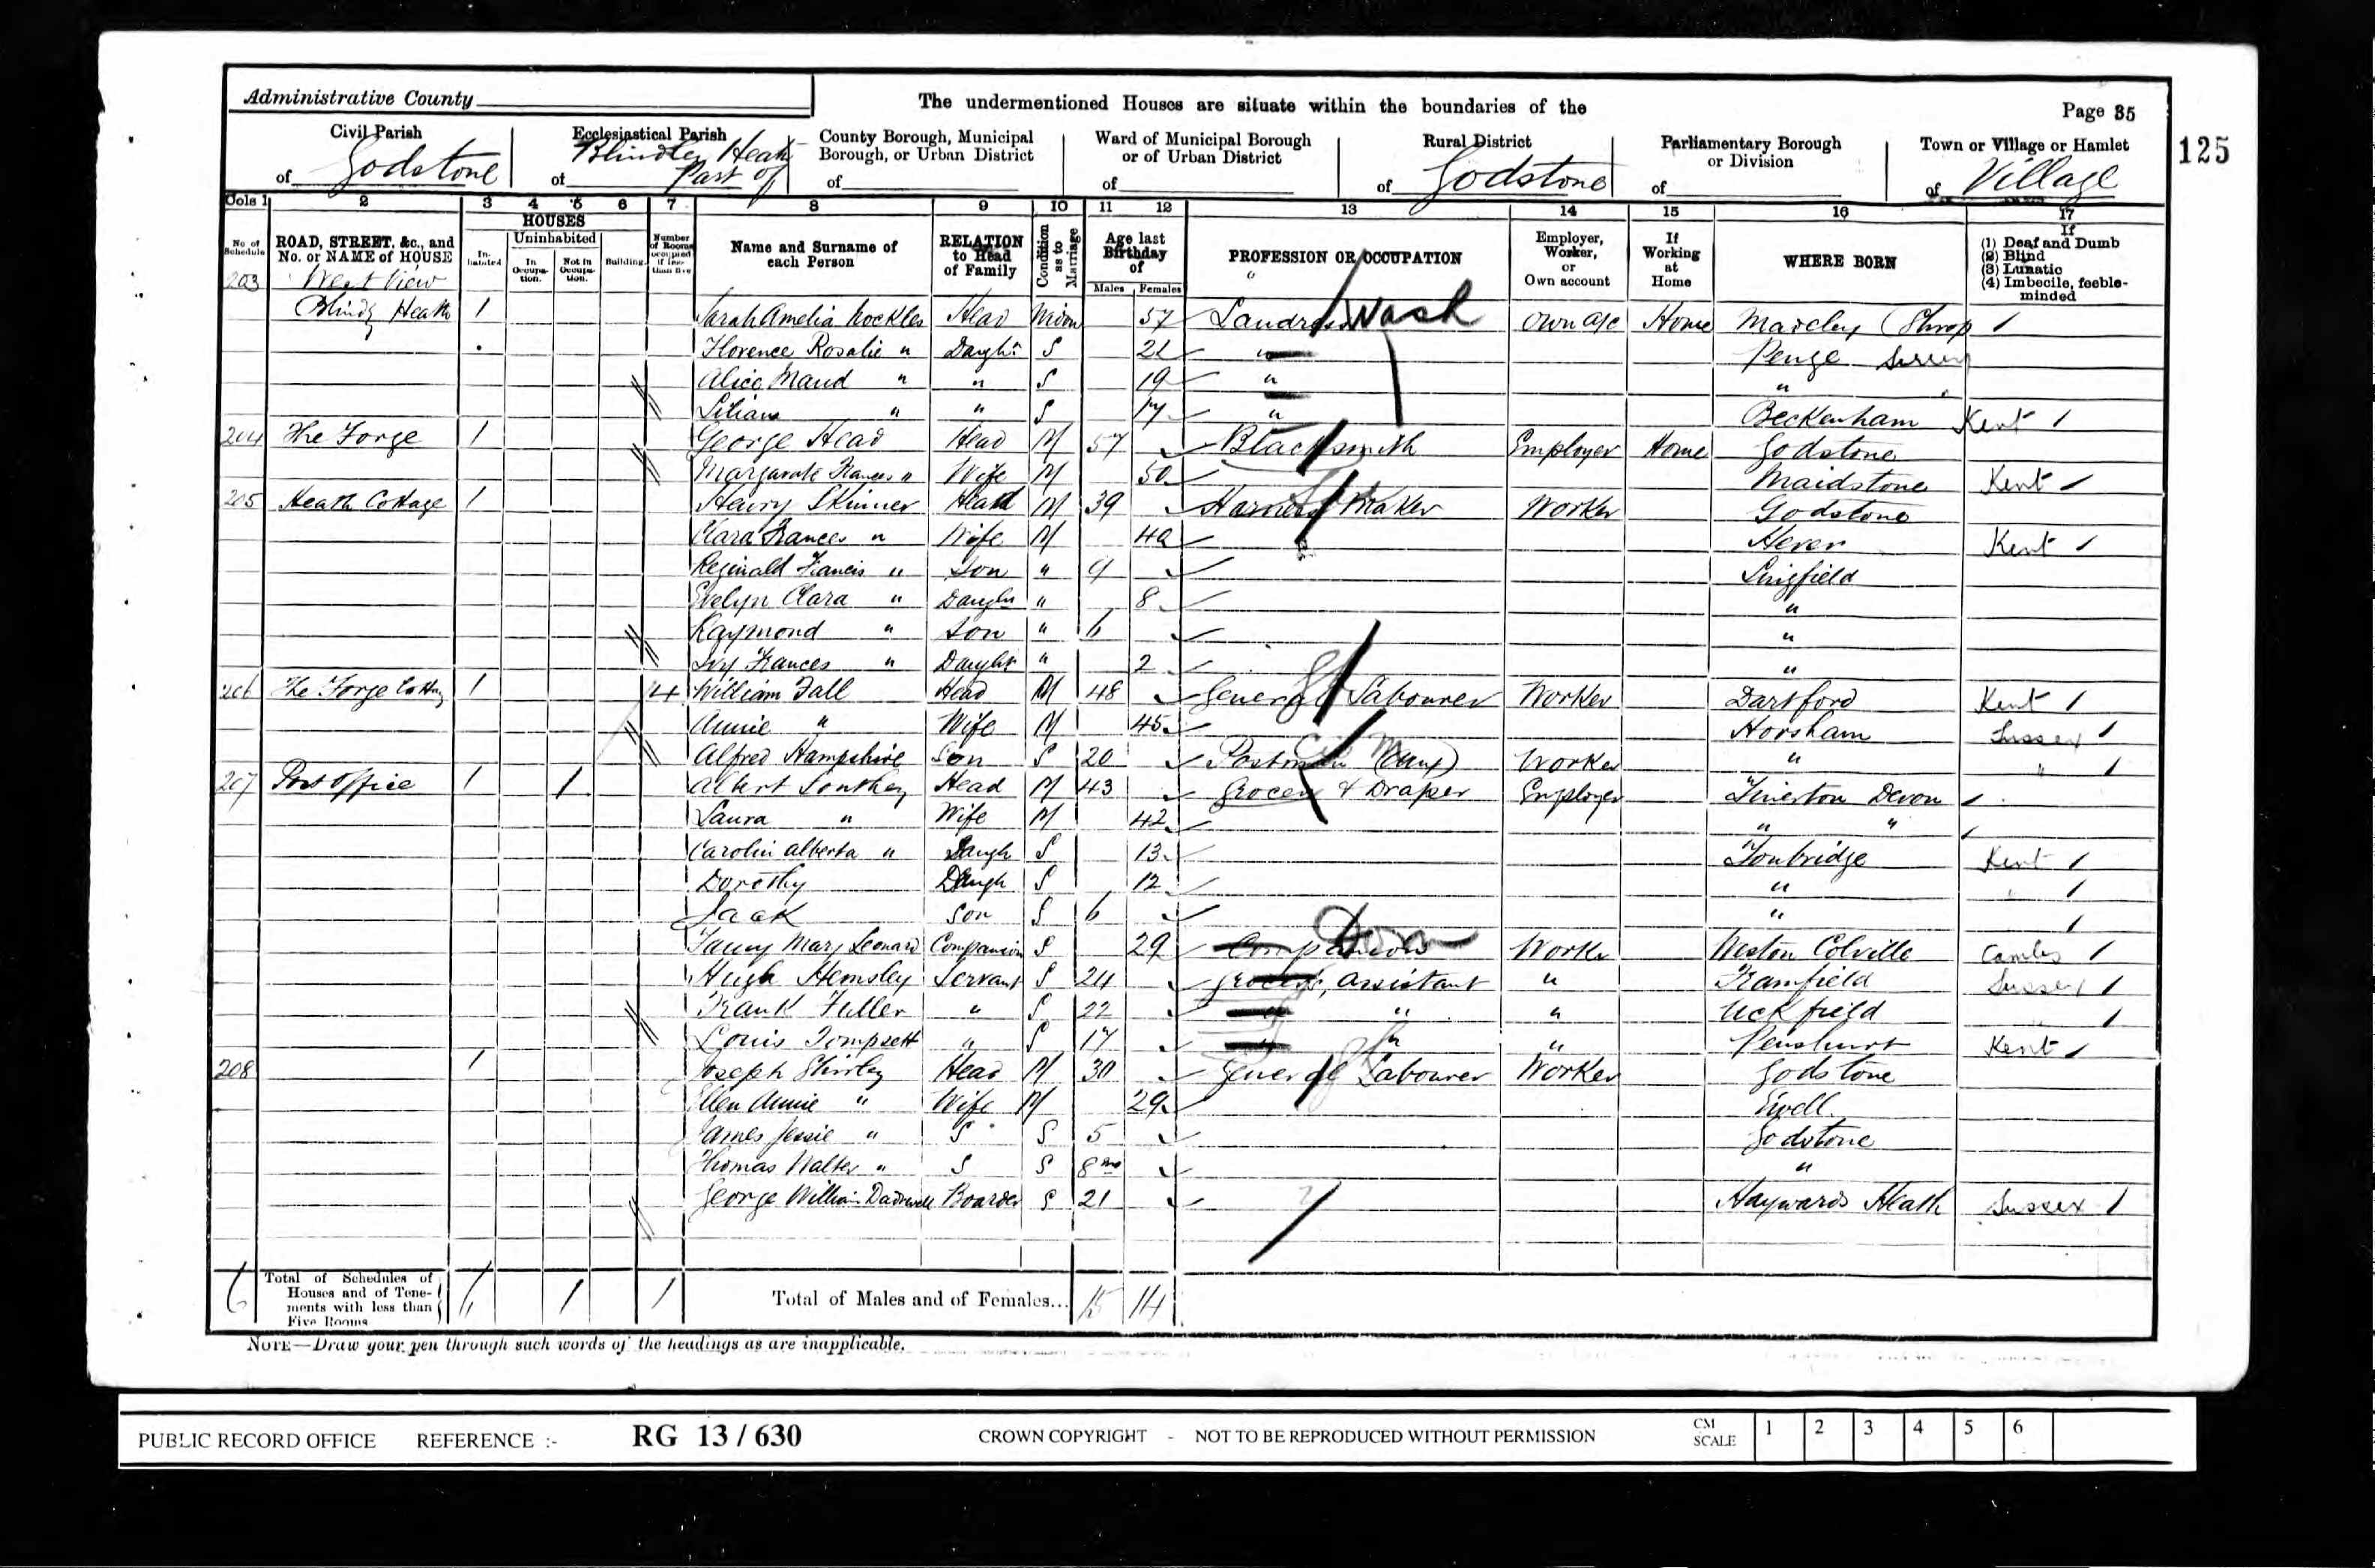 Administrative County
The undermentioned Houses are situate within the boundaries of the
Page 35
125
Civil Parish of Godstone
Ecclesiastical Parish of Blindley Heath Part of
County Borough, Municipal Borough, or Urban District of
Ward of Municipal Borough or of Urban District of
Rural District of Godstone
Parliamentary Borough or Division of
Town or Village or Hamlet of Village
Cols 1 2 3 4 5 6 7 8 9 10 11 12 13 14 15 16 17
No. of Schedule
ROAD, STREET, &c., and No. or NAME of HOUSE
HOUSES
Inhabited
Uninhabited
In Occupation.
Not in Occupation.
Building
Number of Rooms occupied if less than five
Name and Surname of each Person
RELATION to Head of Family
Condition as to Marriage
Age last Birthday of
Males Females
PROFESSION OR OCCUPATION
Employer, Worker, or Own account
If Working at Home
WHERE BORN
If
(1) Deaf and Dumb
(2) Blind
(3) Lunatic
(4) Imbecile, feeble-minded
203 West View
Blindy Heath 1 Sarah Amelia Head Widow 57 Laundress Wash Own a/c Home (Shrop
Florence Rosalie " Daught S 21 " Penge Surrey
Alice Maud " " S 19 " "
Lilian " " S 17 " Beckenham Kent
204 The Forge 1 George Head Head M 57 Blacksmith Employer Home Godstone
Frances " Wife M 50 Maidstone Kent
205 Heath Cottage 1 Henry Skinner Head M 39 Harness Maker Worker Godstone
Clara Frances " Wife M 40 Hever Kent
Reginald Francis " Son " 9 Lingfield
Evelyn Clara " Daught " 8 "
Raymond " Son " 6 "
Ivy Frances " Daught " 2 "
206 The Forge Cottag 1 4 William Fall Head M 48 General Labourer Worker Dartford Kent
Annie " Wife M 45 Horsham Sussex
Alfred Hampshire Son S 20 Postman Worker " "
207 Post Office 1 1 Albert Southey Head M 43 Grocer & Draper Employer Tiverton Devon
Laura " Wife M 42 " "
Carolin Alberta " Daugh S 13 Tonbridge Kent
Dorothy Daugh S 12 " "
Jack Son S 6 "
Fanny Mary Leonard Companion S 29 Companion Dom Worker Weston Colville Cambs
Hugh Hemsley Servant S 24 Grocers Assistant " Framfield Sussex
Frank Fuller " S 22 " " " Uckfield
Louis Tompsett " S 17 " " " Penshurst Kent
208 1 Joseph Shirley Head M 30 General Labourer Worker Godstone
Ellen Annie " Wife M 29 Ewell
James Jessie " S S 5 Godstone
Thomas Walter " S S 8 mo "
George William Boarder S 21 Haywards Heath Sussex
6 Total of Schedules of Houses and of Tenements with less than Five Rooms 6 1 1 Total of Males and of Females... 15 14
NOTE—Draw your pen through such words of the headings as are inapplicable.
PUBLIC RECORD OFFICE REFERENCE :- RG 13 / 630 CROWN COPYRIGHT - NOT TO BE REPRODUCED WITHOUT PERMISSION CM SCALE 1 2 3 4 5 6